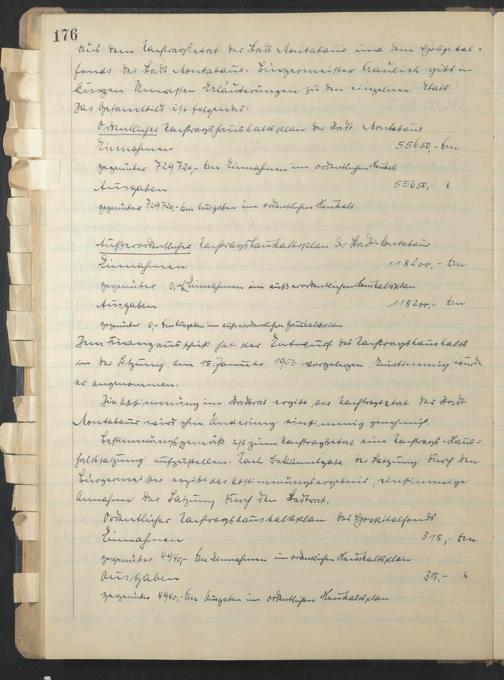 176
aus dem Nachtragsetat der Stadt Montabaur und dem Hospital-
fonds der Stadt Montabaur. Bürgermeister Kraulich gibt in
kurzen Umrissen Erläuterungen zu den einzelnen Etats.
Das Gesamtbild ist folgendes:
Ordentlicher Nachtragshaushaltsplan der Stadt Montabaur
Einnahmen 55650,- Dm
gegenüber 729720,- Dm Einnahmen im ordentlichen Haushalt
Ausgaben 55650,- "
gegenüber 729720,- Dm Ausgaben im ordentlichen Haushalt.
Außerordentlicher Nachtragshaushaltsplan der Stadt Montabaur
Einnahmen 118200,- Dm
gegenüber 0,- Einnahmen im außerordentlichen Haushaltsplan
Ausgaben 118200,- Dm
gegenüber 0,- Dm Ausgaben im außerordentlichen Haushaltsplan
Dem Finanzausschuß hat der Entwurf des Nachtragshaushalts
in der Sitzung am 15. Januar 1953 vorgelegen. Einstimmig wurde
er angenommen.
Die Abstimmung im Stadtrat ergibt, der Nachtragsetat der Stadt
Montabaur wird ohne Änderung einstimmig genehmigt.
Bestimmungsgemäß ist zum Nachtragsetat eine Nachtrags-Haus-
haltssatzung aufzustellen. Nach Bekanntgabe der Satzung durch den
Bürgermeister ergibt das Abstimmungsergebnis, einstimmige
Annahme der Satzung durch den Stadtrat.
Ordentlicher Nachtragshaushaltsplan des Hospitalfonds
Einnahmen 315,- Dm
gegenüber 4940,- Dm Einnahmen im ordentlichen Haushaltsplan
Ausgaben 315,- "
gegenüber 4940,- Dm Ausgaben im ordentlichen Haushaltsplan